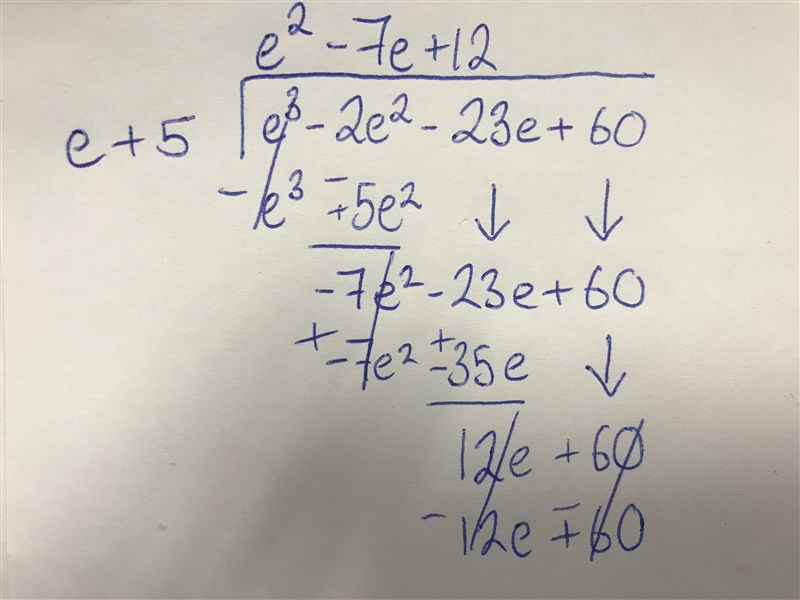 e² - 7e + 12
e + 5 e³ - 2e² - 23e + 60
- e³ ∓ 5e² ↓ ↓
-7e² - 23e + 60
+ -7e² + -35e ↓
12e + 60
- 12e ∓ 60